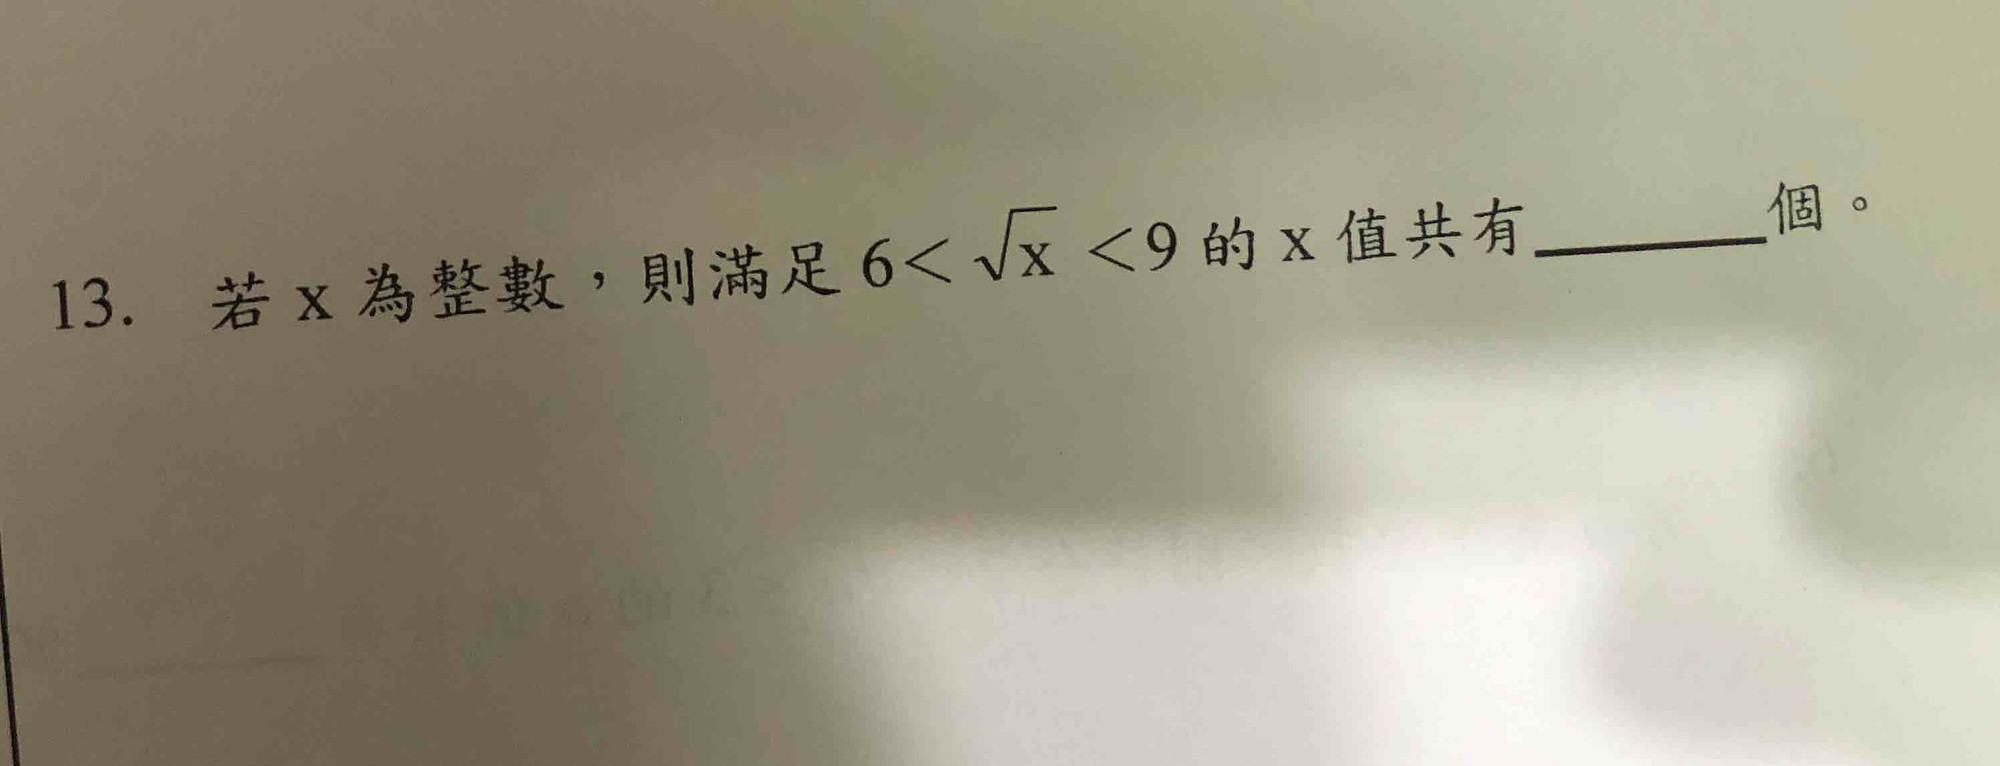 13. 若 x 為整數，則滿足 6< √x <9 的 x 值共有______個。